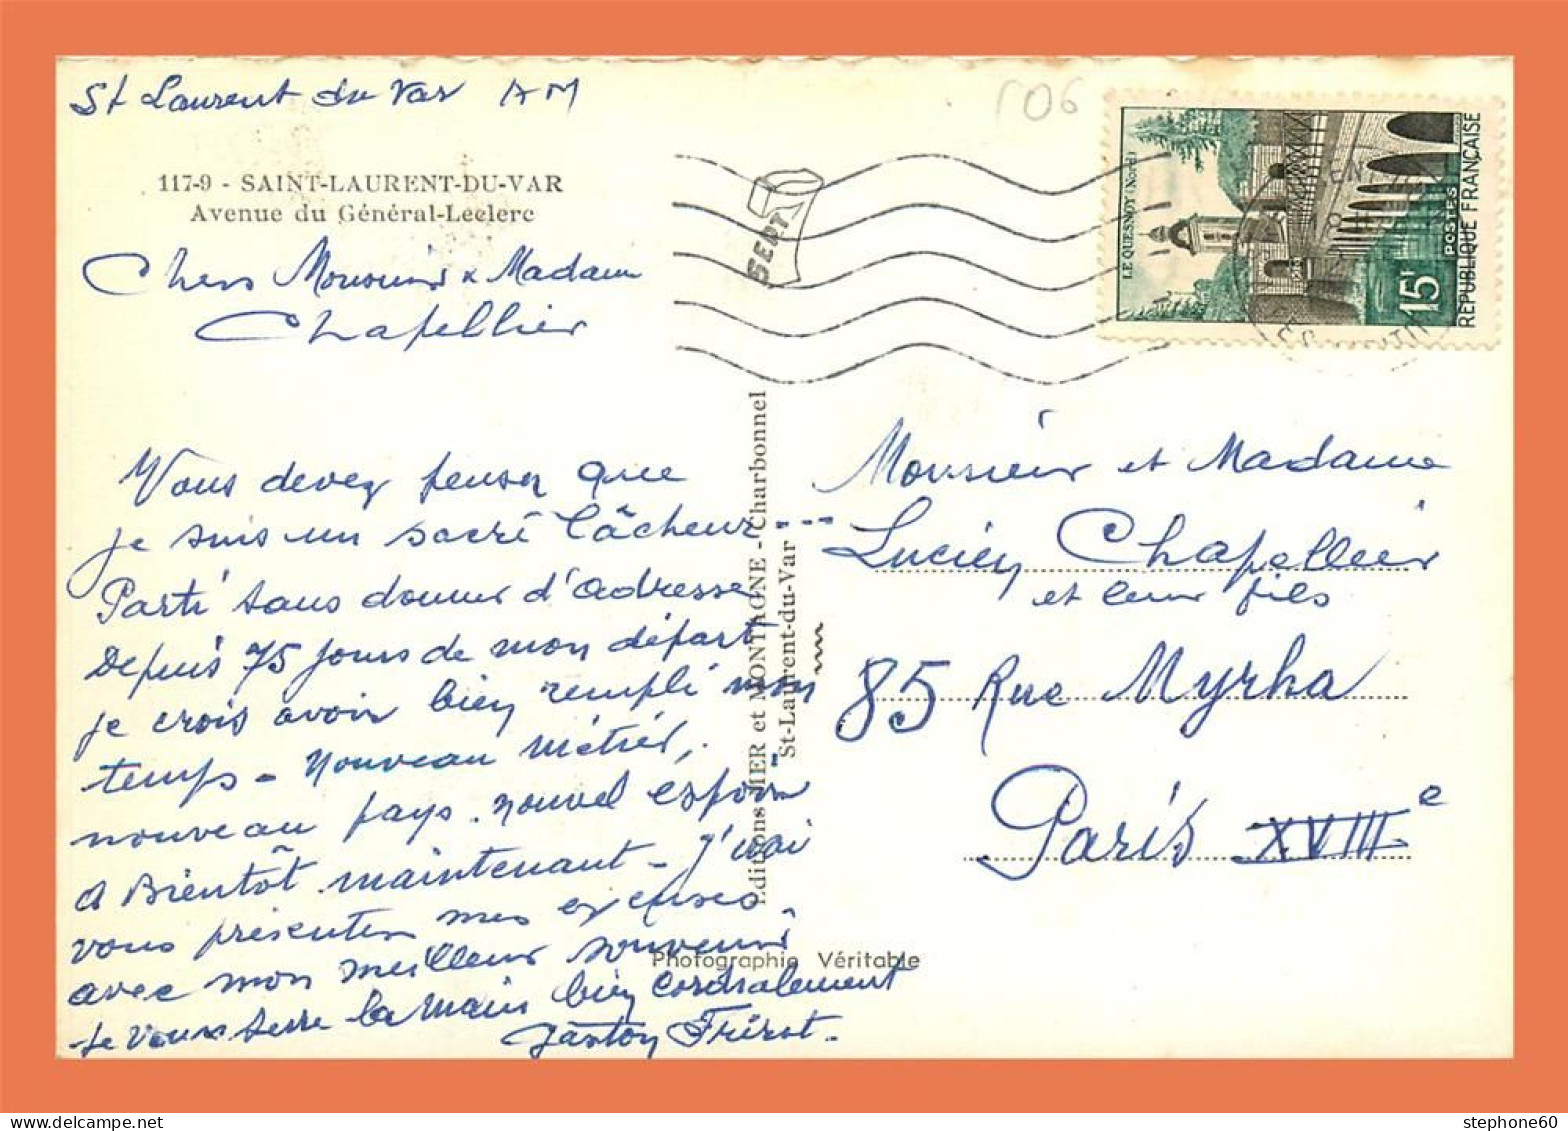 St Laurent du Var AM
106
117-9 - SAINT-LAURENT-DU-VAR
Avenue du Général-Leclerc
Chers Monsieur & Madame
Chapellier
Vous devez penser que
je suis un sacré lâcheur ---
Parti sans donner d'adresse
Depuis 75 jours de mon départ
je crois avoir bien rempli mon
temps - nouveau métier,
nouveau pays. nouvel espoir
a Bientôt maintenant - J'vai
vous présenter mes excuses
avec mon meilleur souvenir
Je vous serre la main bien cordialement
Gaston Frérot.
Editions MER et MONTAGNE - Charbonnel
St-Laurent-du-Var
Photographie Véritable
SEPT
LE QUESNOY (Nord)
15F
POSTES
REPUBLIQUE FRANÇAISE
Monsieur et Madame
Lucien Chapellier
et leur fils
85 Rue Myrha
Paris XVIIIe
stephone60